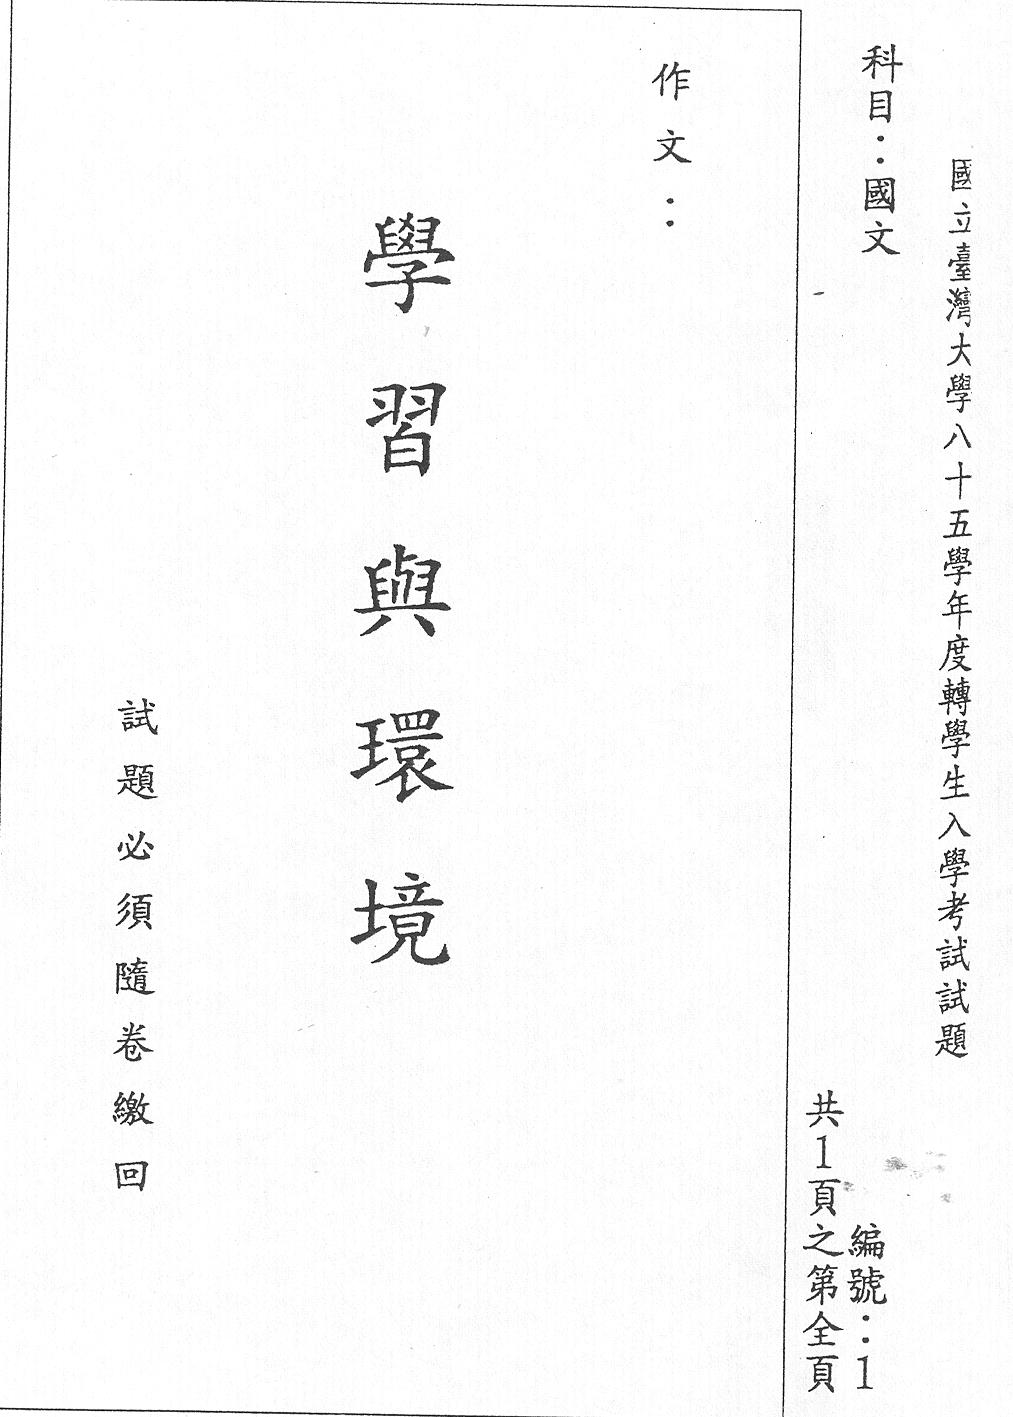 國立臺灣大學八十五學年度轉學生入學考試試題
科目：國文
編號：1
共1頁之第全頁
作文：
學習與環境
試題必須隨卷繳回